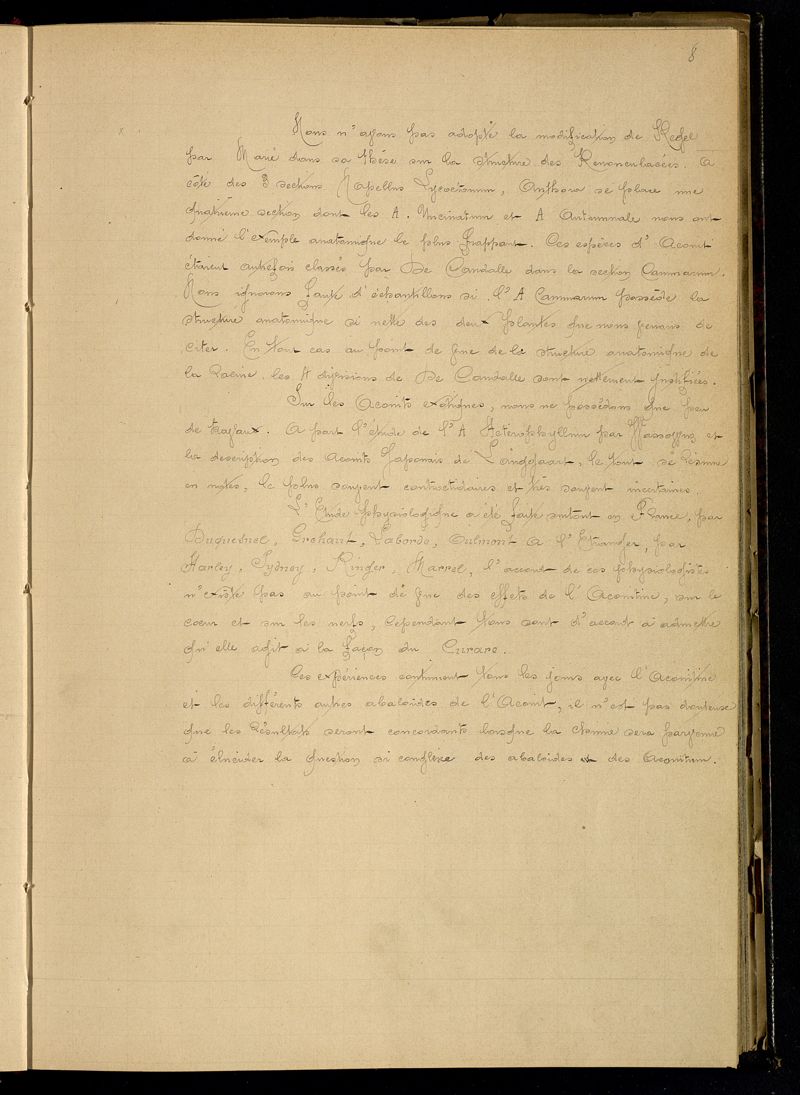 8
Nous n'avons pas adopté la modification de Regel
par Marié dans sa thèse sur la structure des Renonculacées. A
côté des 3 sections Napellus Lycoctonum, Anthora se place une
quatrième section dont les A. Uncinatum et A Autumnale nous ont
donné l'exemple anatomique le plus frappant. Ces espèces d'Aconit
étaient autrefois classés par De Candolle dans la section Cammarum.
Nous ignorons faute d'échantillons si l'A Cammarum possède la
structure anatomique si nette des deux plantes que nous venons de
citer. En tout cas au point de vue de la structure anatomique de
la Racine les 4 divisions de De Candolle sont nettement justifiées.
Sur les Aconits exotiques, nous ne possédons que peu
de travaux. A part l'étude de l'A Heterophyllum par et
la description des Aconits Japonais de Langgaart, le tout se résume
en notes, le plus souvent contradictoires et très souvent incertaines.
L'Etude physiologique a été faite surtout en France, par
Duquesnel, Grehaut, Laborde, Oulmont A l'Etranger, par
Harley, Sydney, Ringer, Murrel, l'accord de ces physiologistes
n'existe pas au point de vue des effets de l'Aconitine, sur le
coeur et sur les nerfs, cependant tous sont d'accord à admettre
qu'elle agit à la façon du Curare.
Les expériences continuent tous les jours avec l'Aconitine
et les différents autres alcaloïdes de l'Aconit, il n'est pas douteuse
que les Résultats seront concordants lorsque la chimie sera parvenue
à élucider la question si complexe des alcaloides et des Aconitum.